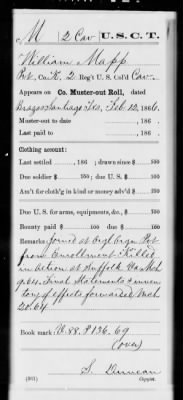 M 2 Cav U.S.C.T.
William Mapp
Pvt, Co. K, 2 Reg't U.S. Col'd Cav.
Appears on Co. Muster-out Roll, dated
Brazos Santiago Tex, Feb. 12, 1866.
Muster-out to date , 186 .
Last paid to , 186 .
Clothing account:
Last settled , 186 ; drawn since $ 100
Due soldier $ 100; due U.S. $ 100
Am't for cloth'g in kind or money adv'd $ 100
Due U.S. for arms, equipments, &c., $ 100
Bounty paid $ 100; due $ 100
Remarks: Joined at Orgl Orgn Pvt
from Enrollment Killed
in action at Suffolk Va Mch
9.64. Final Statements & inven
tory of effects forwarded Mch
20.64
Book mark: R.88.P136.69
(over)
S. Duncan
(361) Copyist.